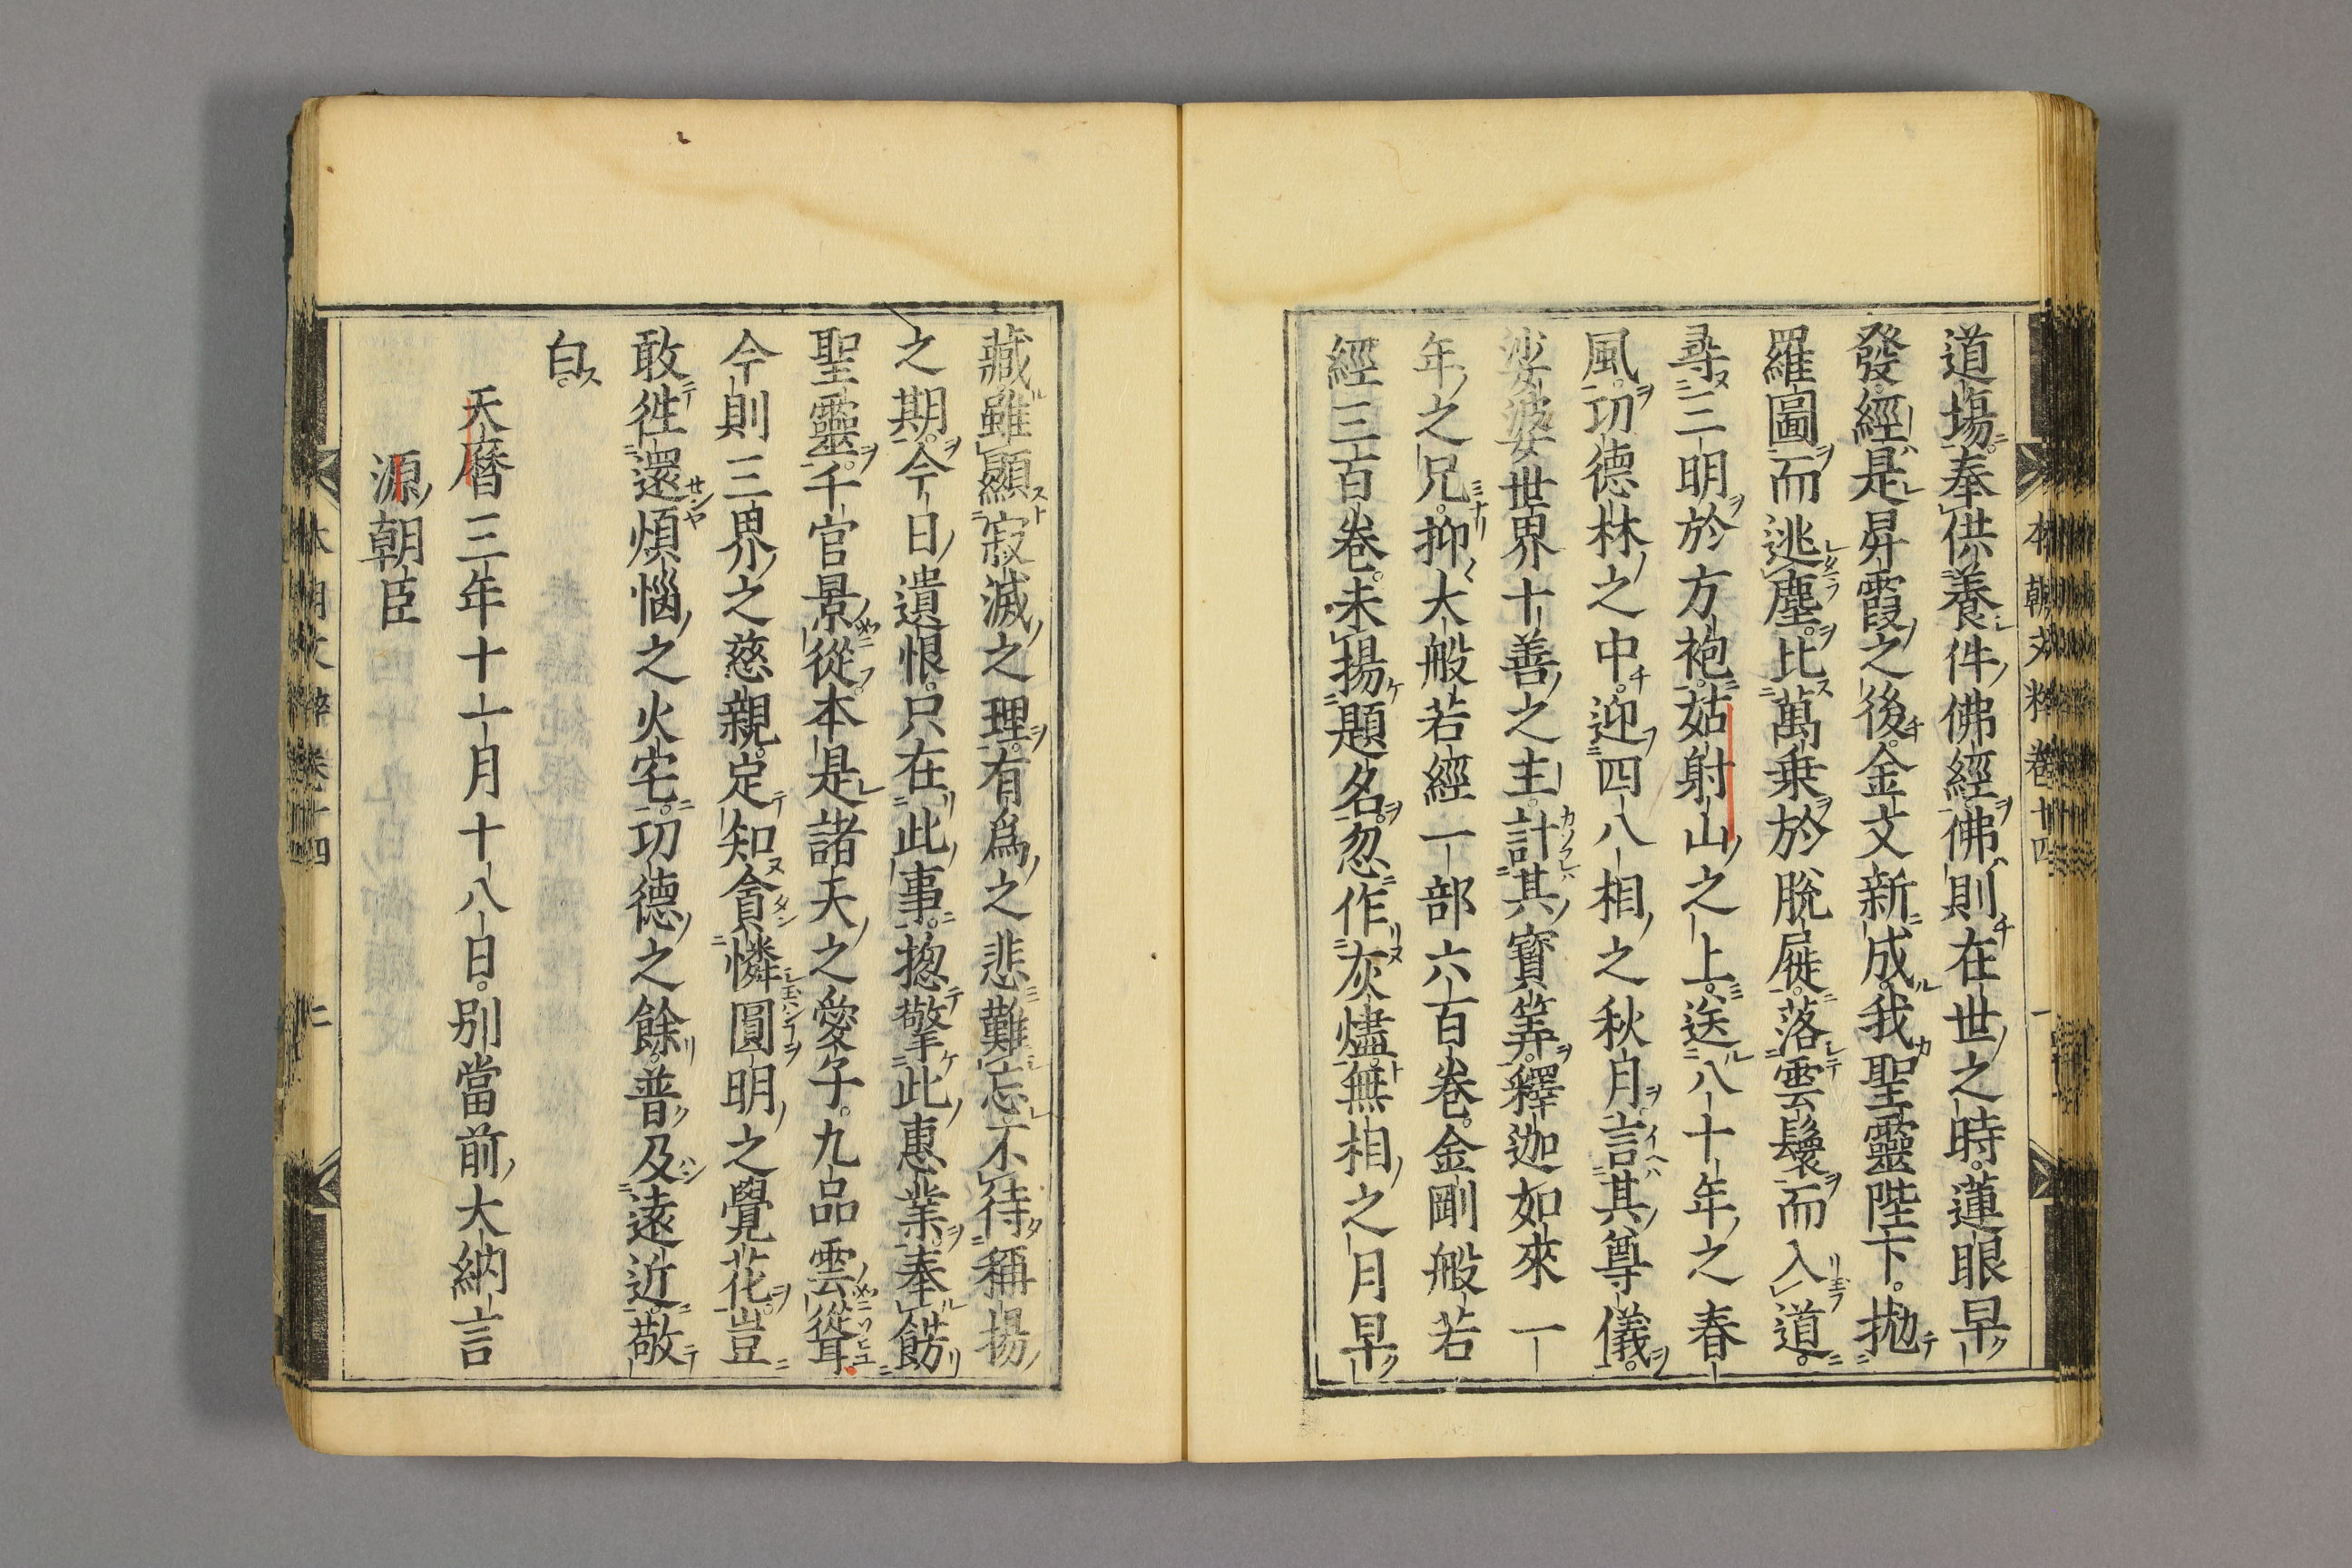 本朝文粹卷十四 一
道場奉供養件佛經佛則在世之時蓮眼早
發經是昇霞之後金文新成我聖靈陛下拋
羅圖而逃塵比萬乗於脫屣落雲鬟而入道
尋三明於方袍姑射山之上送八十年之春
風功德林之中迎四八相之秋月言其尊儀
娑婆世界十善之主計其寶筭釋迦如來一
年之兄抑大般若經一部六百卷金剛般若
經三百卷未揚題名忽作灰燼無相之月早
藏雖顯寂滅之理有爲之悲難忘不待稱揚
之期今日遺恨只在此事揔擎此惠業奉餝
聖靈千官景從本是諸天之愛子九品雲聳
今則三界之慈親定知貪憐圓明之覺花豈
敢徃還煩惱之火宅功德之餘普及遠近敬
白
天曆三年十一月十八日別當前大納言
源朝臣
本朝文粹卷十四 二